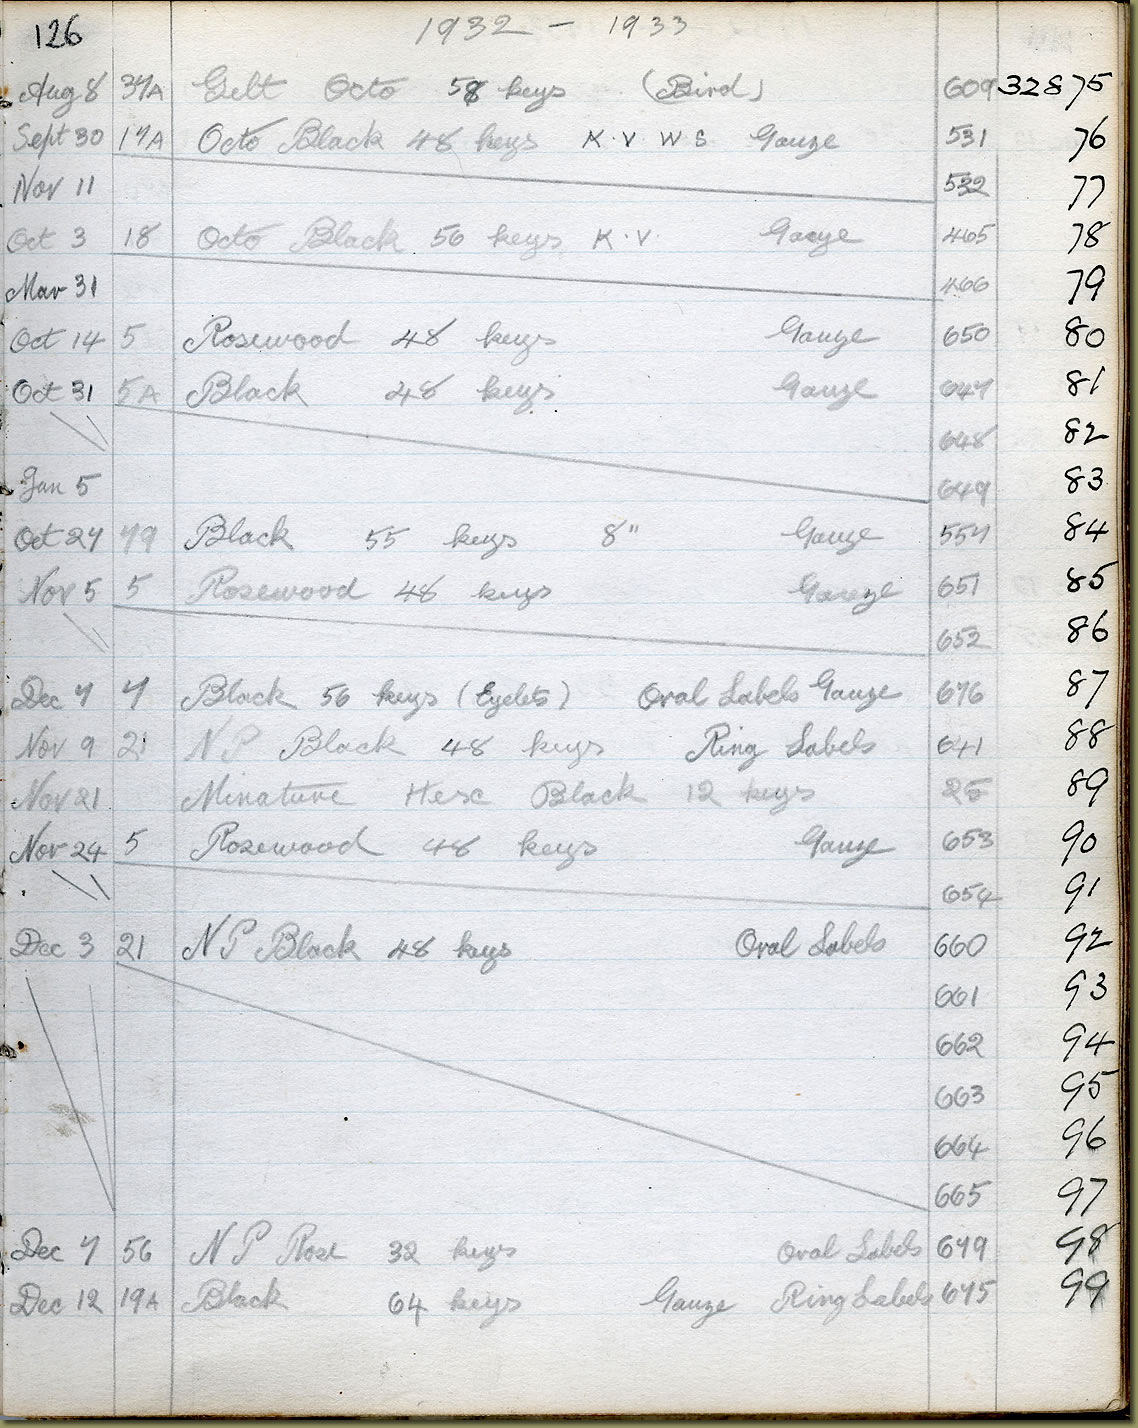 126 1932 – 1933
Aug 8 37A Gilt Octo 58 keys (Bird) 609 32875
Sept 30 17A Octo Black 48 keys K.V W S Gauze 531 76
Nov 11 532 77
Oct 3 18 Octo Black 56 keys K.V. Gauze 465 78
Mar 31 466 79
Oct 14 5 Rosewood 48 keys Gauze 650 80
Oct 31 5A Black 48 keys Gauze 647 81
648 82
Jan 5 649 83
Oct 27 79 Black 55 keys 8" Gauze 557 84
Nov 5 5 Rosewood 48 keys Gauze 651 85
652 86
Dec 7 7 Black 56 keys (Eyelets) Oval Labels Gauze 676 87
Nov 9 21 N P Black 48 keys Ring Labels 641 88
Nov 21 Minature Hexe Black 12 keys 25 89
Nov 24 5 Rosewood 48 keys Gauze 653 90
654 91
Dec 3 21 N P Black 48 keys Oval Labels 660 92
661 93
662 94
663 95
664 96
665 97
Dec 7 56 N P Rose 32 keys Oval Labels 679 98
Dec 12 19A Black 64 keys Gauze Ring Labels 675 99